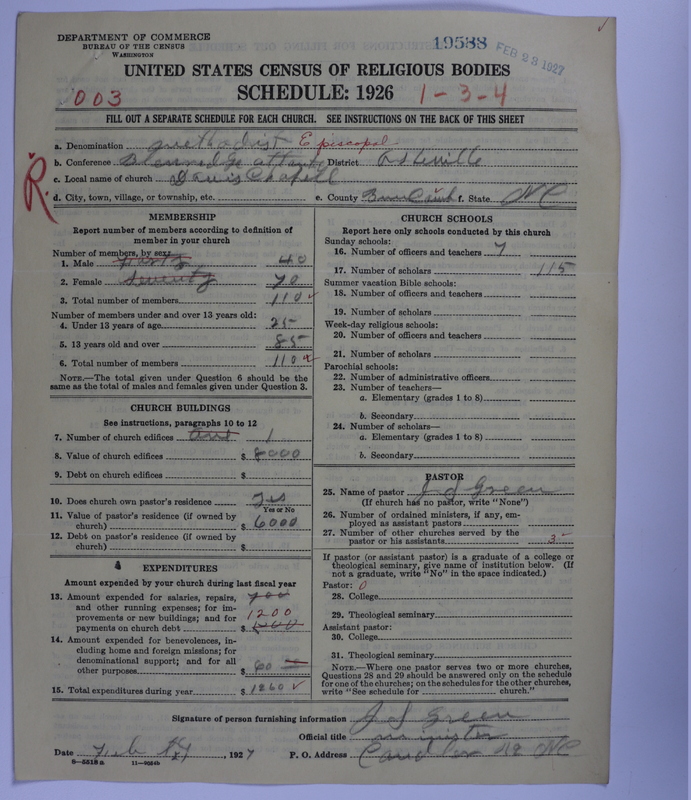 DEPARTMENT OF COMMERCE
BUREAU OF THE CENSUS
WASHINGTON
19588 FEB 23 1927
UNITED STATES CENSUS OF RELIGIOUS BODIES
003 SCHEDULE: 1926 1-3-4
FILL OUT A SEPARATE SCHEDULE FOR EACH CHURCH. SEE INSTRUCTIONS ON THE BACK OF THIS SHEET
a. Denomination Methodist Episcopal
b. Conference District
c. Local name of church Davis Chapell
R.
d. City, town, village, or township, etc. e. County f. State NC
MEMBERSHIP
Report number of members according to definition of
member in your church
Number of members, by sex:
1. Male forty 40
2. Female Seventy 70
3. Total number of members 110
Number of members under and over 13 years old:
4. Under 13 years of age 25
5. 13 years old and over 85
6. Total number of members 110
NOTE.—The total given under Question 6 should be the
same as the total of males and females given under Question 3.
CHURCH BUILDINGS
See instructions, paragraphs 10 to 12
7. Number of church edifices one 1
8. Value of church edifices $ 8000
9. Debt on church edifices $
10. Does church own pastor's residence Yes
Yes or No
11. Value of pastor's residence (if owned by
church) $ 6000
12. Debt on pastor's residence (if owned by
church) $
EXPENDITURES
Amount expended by your church during last fiscal year
13. Amount expended for salaries, repairs,
and other running expenses; for im-
provements or new buildings; and for 1200
payments on church debt $
14. Amount expended for benevolences, in-
cluding home and foreign missions; for
denominational support; and for all
other purposes $ 60
15. Total expenditures during year $ 1260
CHURCH SCHOOLS
Report here only schools conducted by this church
Sunday schools:
16. Number of officers and teachers 7
17. Number of scholars 115
Summer vacation Bible schools:
18. Number of officers and teachers
19. Number of scholars
Week-day religious schools:
20. Number of officers and teachers
21. Number of scholars
Parochial schools:
22. Number of administrative officers
23. Number of teachers—
a. Elementary (grades 1 to 8)
b. Secondary
24. Number of scholars—
a. Elementary (grades 1 to 8)
b. Secondary
PASTOR
25. Name of pastor J S Green
(If church has no pastor, write "None")
26. Number of ordained ministers, if any, em-
ployed as assistant pastors
27. Number of other churches served by the
pastor or his assistants 3
If pastor (or assistant pastor) is a graduate of a college or
theological seminary, give name of institution below. (If
not a graduate, write "No" in the space indicated.)
Pastor: 0
28. College
29. Theological seminary
Assistant pastor:
30. College
31. Theological seminary
NOTE.—Where one pastor serves two or more churches,
Questions 28 and 29 should be answered only on the schedule
for one of the churches; on the schedules for the other churches,
write "See schedule for church."
Signature of person furnishing information J S Green
Official title minister
Date Feb , 1927 P. O. Address Candler NC
8—5518a 11—9054b